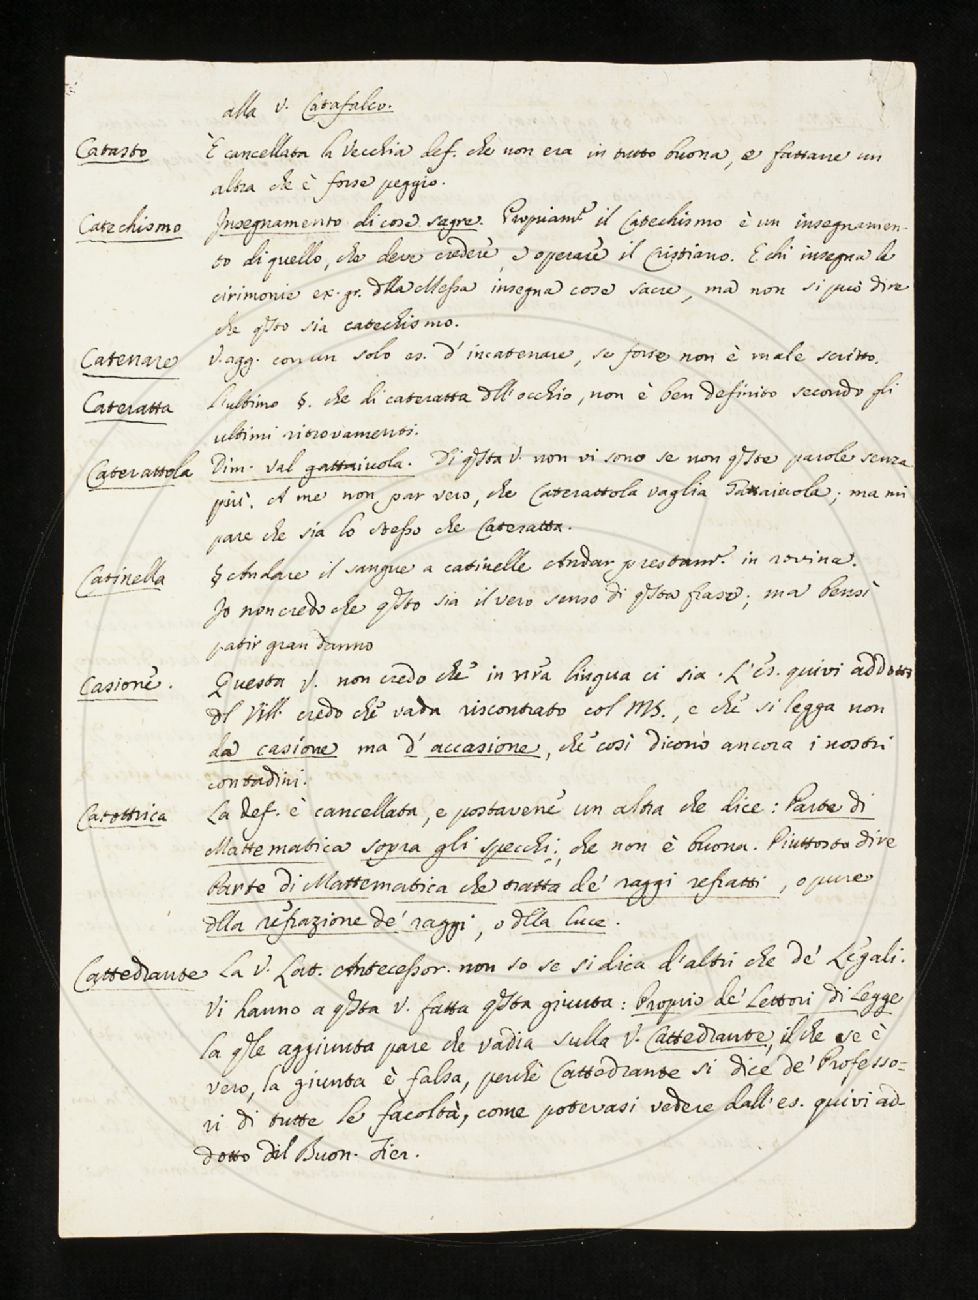 alla V. Catafalco.
Catasto È cancellata la Vecchia def. che non era in tutto buona, e fattane un
altra che è forse peggio.
Catechismo Insegnamento di cose sagre. Propiam.te il Catechismo è un insegnamen-
to di quello, che deve credere, e operare il Cristiano. E chi insegna le
cirimonie ex. gr. dlla Messa insegna cose sacre, ma non si può dire
che qsto sia catechismo.
Catenare V. agg. con un solo es. d'incatenare, se forse non è male scritto.
Cateratta L'ultimo §. che di cateratta dll'occhio, non è ben definito secondo gli
ultimi ritrovamenti.
Caterattola Dim. val gattaiuola. Di qsta V. non vi sono se non qste parole senza
più. A me non par vero, che Caterattola vaglia Gattaiuola; ma mi
pare che sia lo stesso che Cateratta.
Catinella § Andare il sangue a catinelle Andar prestam.te in rovina.
Io non credo che qsto sia il vero senso di qsta frase; ma bensì
patir gran danno
Casione. Questa V. non credo che in nra lingua ci sia. L'es. quivi addotto
dl Vill. credo che vada riscontrato col MS., e che si legga non
da casione ma d'accasione, che così dicono ancora i nostri
contadini.
Catottrica La def. è cancellata, e postavene un altra che dice: Parte di
Mattematica sopra gli specchi; che non è buona. Piuttosto dire
Parte di Mattematica che tratta de' raggi refratti, o pure
dlla refrazione de' raggi, o dlla luce.
Cattedrante La V. Lat. Antecessor. non so se si dica d'altri che de' Legali.
Vi hanno a qsta V. fatta qsta giunta: Proprio de' Lettori di Legge
la qle aggiunta pare che vadia sulla V. Cattedrante, il che se è
vero, la giunta è falsa, perchè Cattedrante si dice de' Professo=
ri di tutte le facoltà, come potevasi vedere dall'es. quivi ad-
dotto del Buon. Fier.